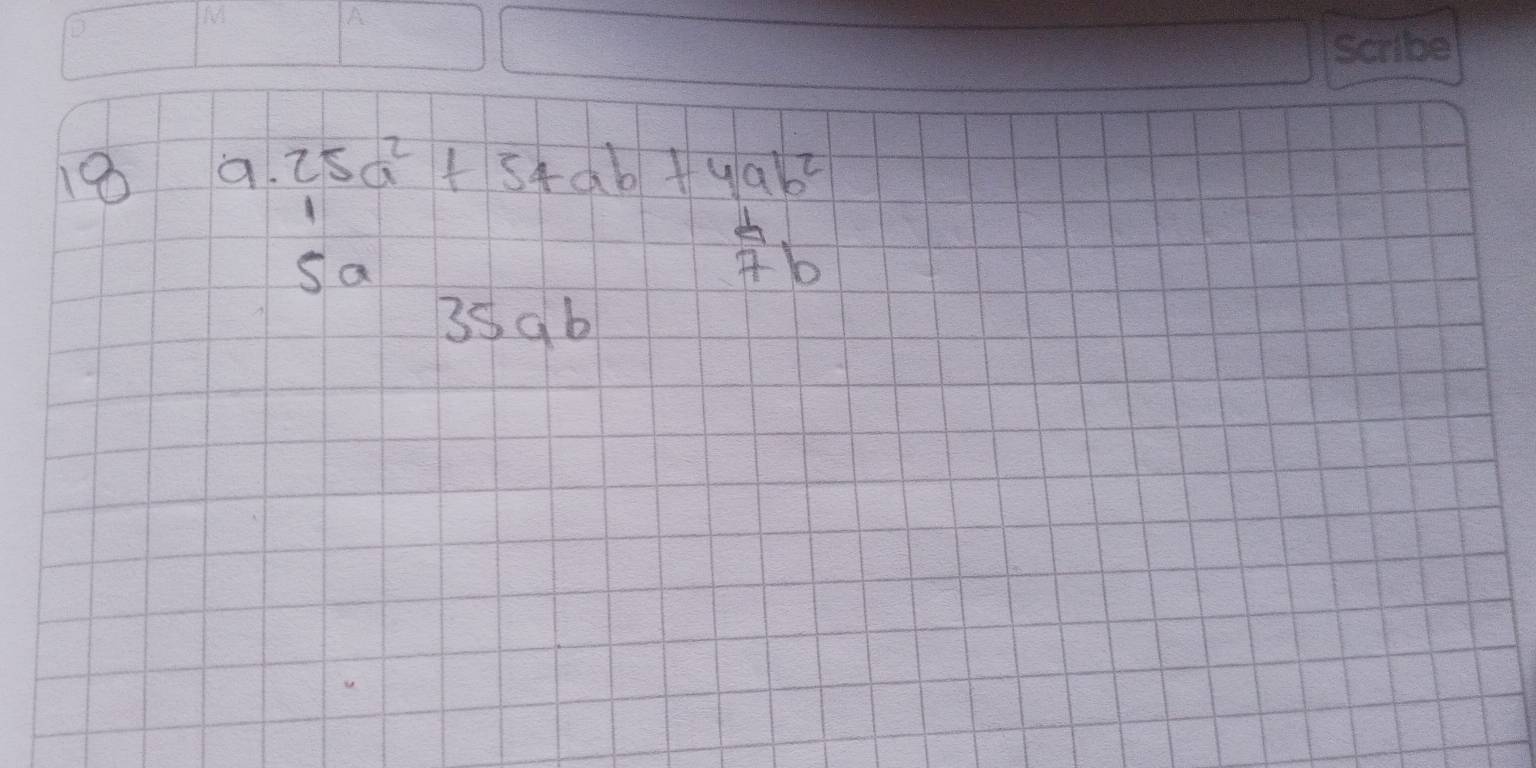 D M A Scribe
18 a. 25a² + 54ab + 49b²
5a 7b
35ab